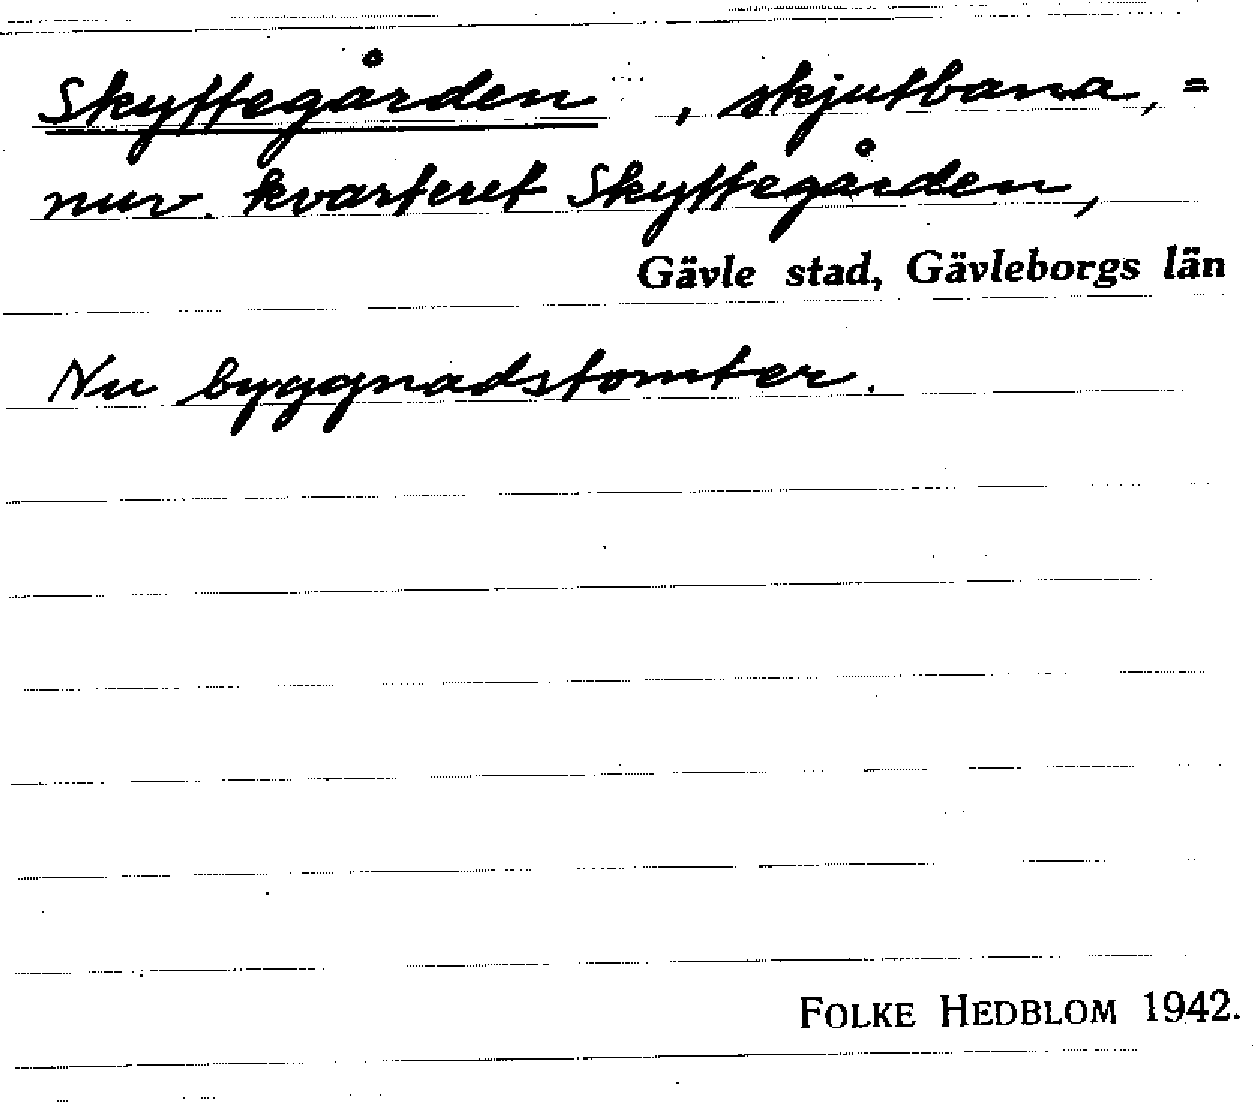 Skyttegården , skjutbana, =
nuv. kvarteret Skyttegården,
Gävle stad, Gävleborgs län
Nu byggnadstomter.
FOLKE HEDBLOM 1942.